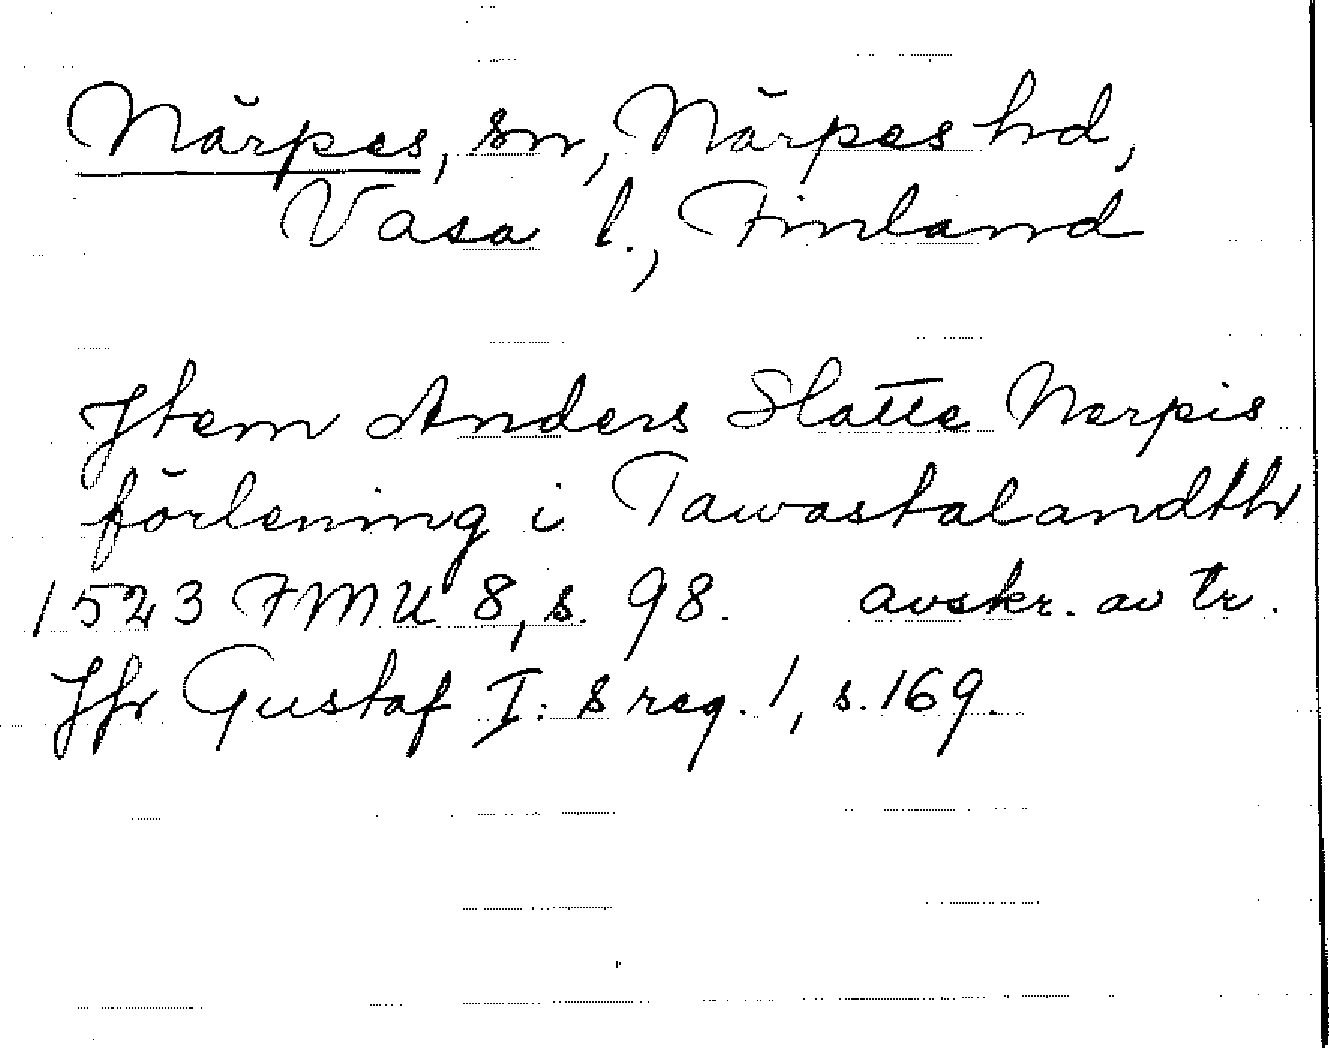 Närpes, sn, Närpes hd,
Vasa l., Finland
Jtem Anders Slatte Nerpis
förlening i Tawastalandth
1523 FMU 8, s. 98. avskr. av tr.
Jfr Gustaf I:s reg. 1, s. 169.